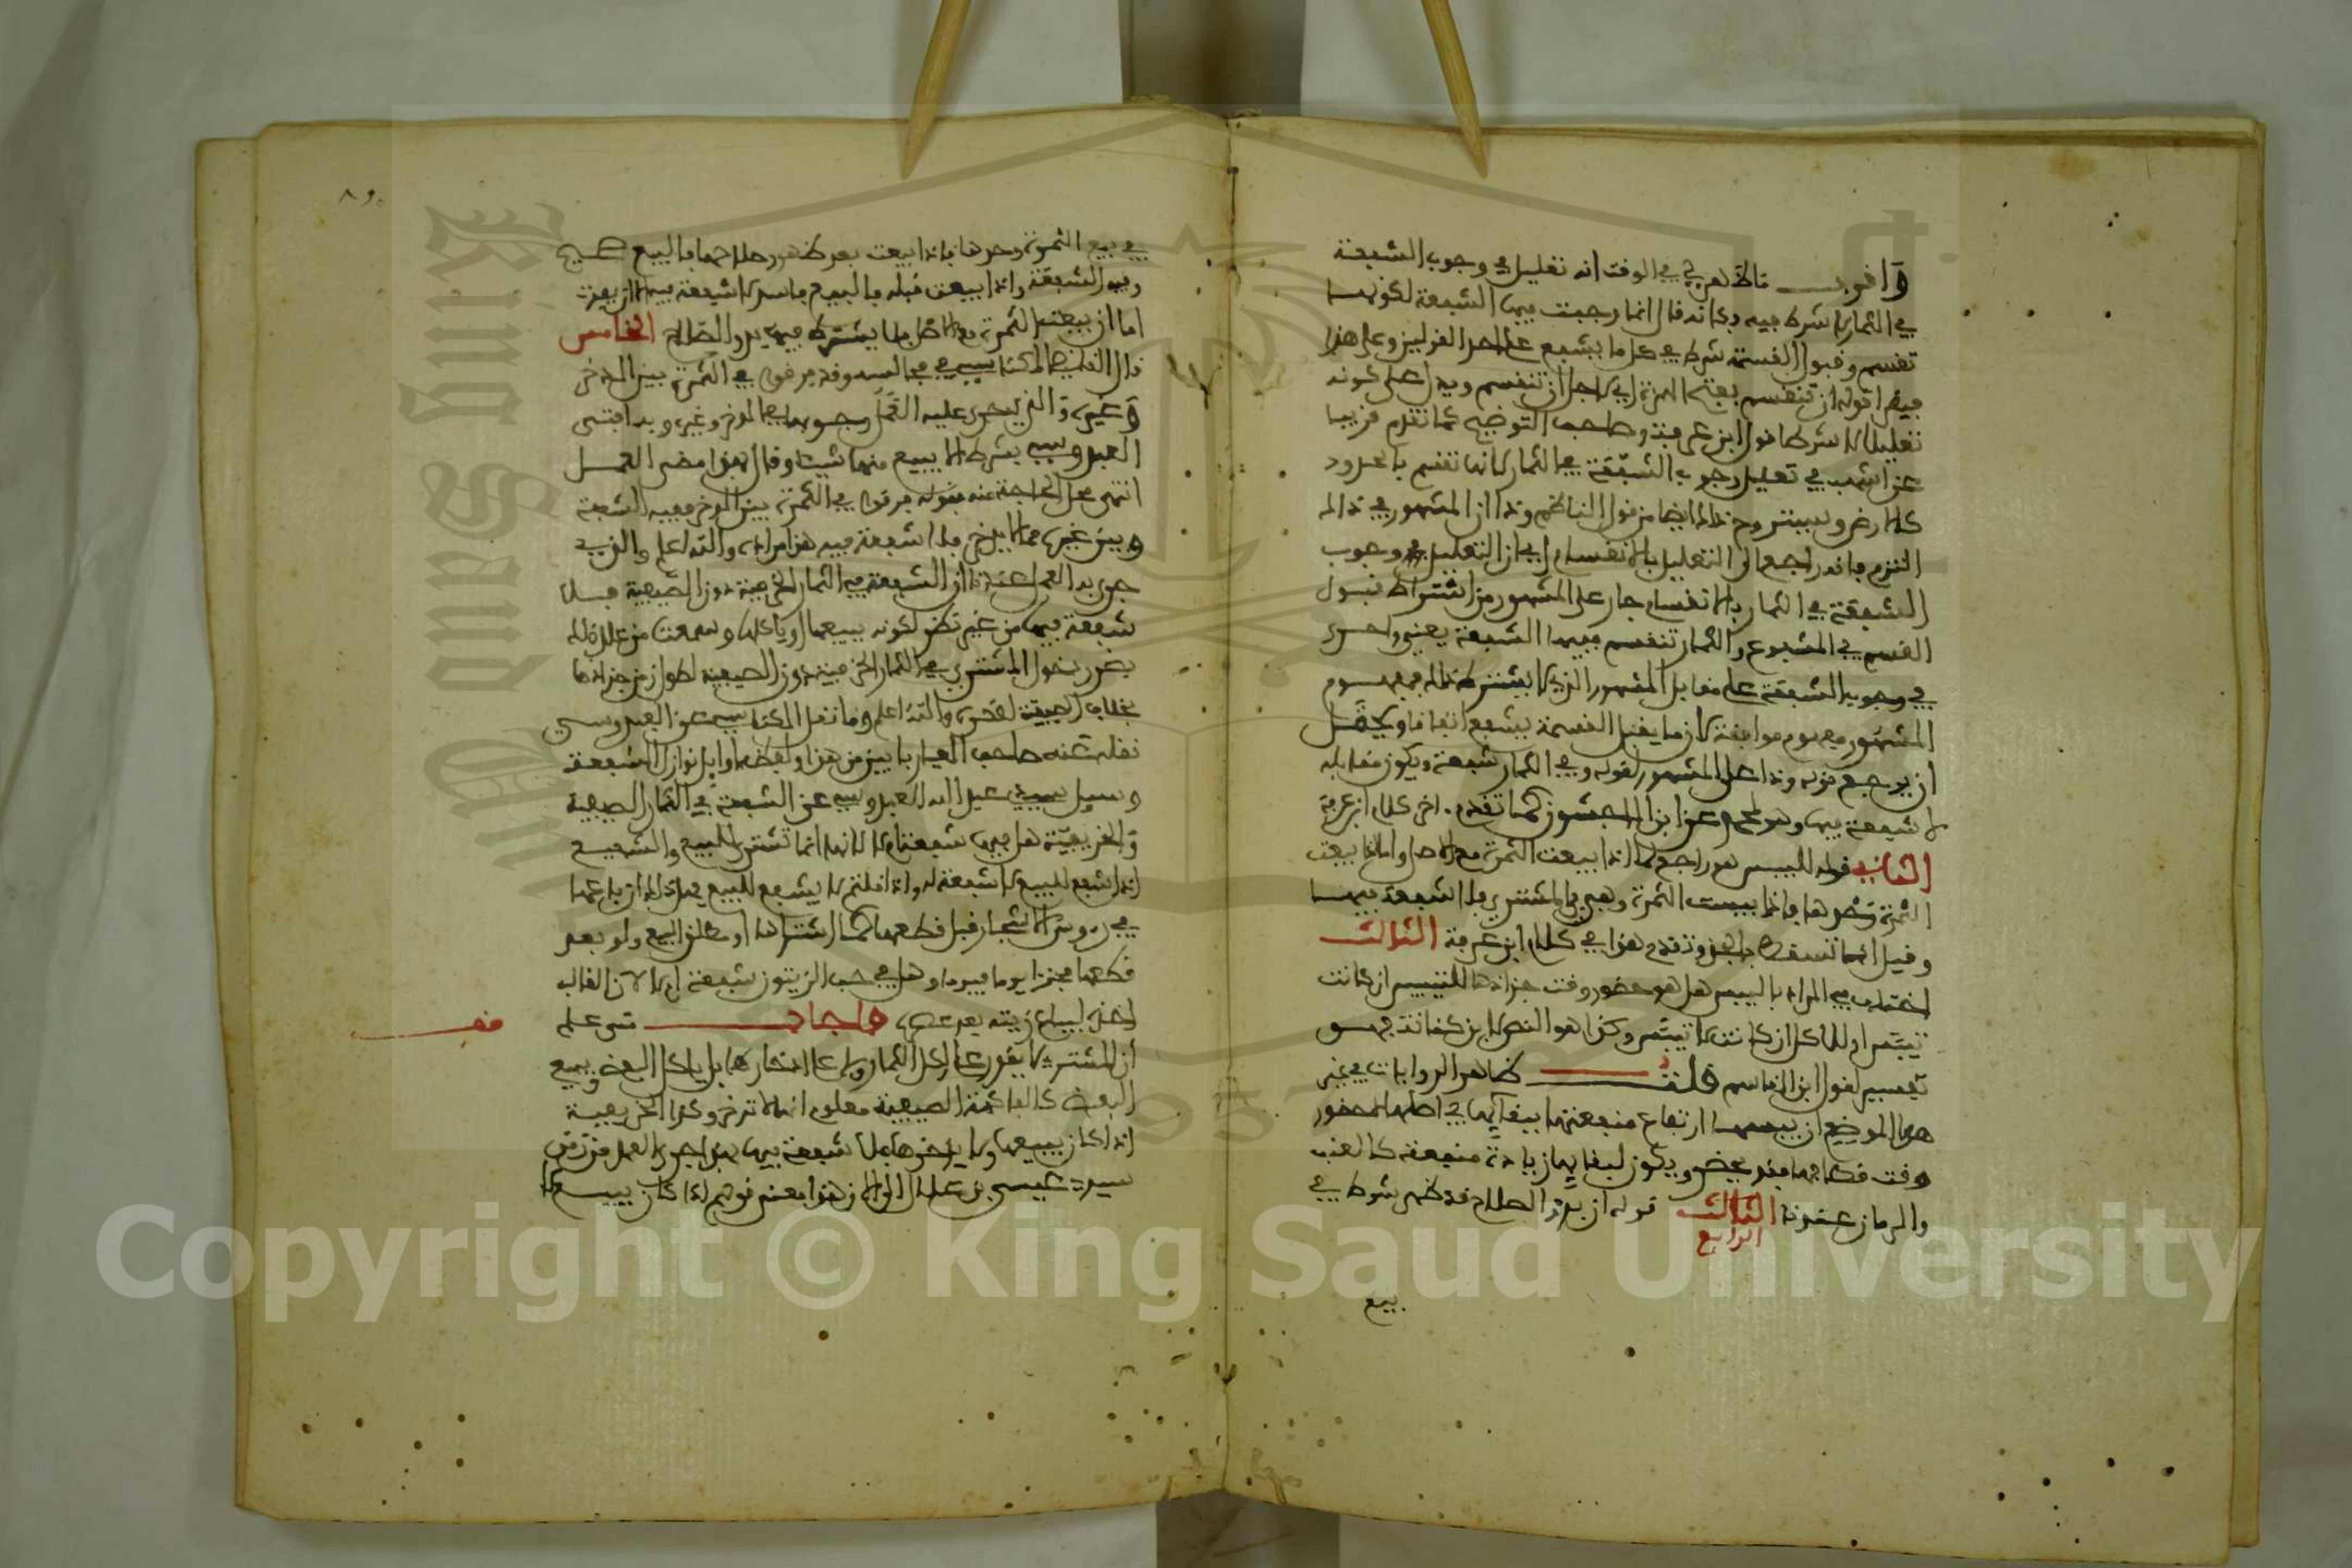 واقرب ما ظهر لي في الوقت انه تعليل في وجوب الشفعة
في الثمار لا شرط فيه وكانه قال انما وجبت فيها الشفعة لكونها
تنقسم وقبول القسمة شرط في كل ما يشفع على احد القولين وعلى هذا
تعليلا لا شرطا قول ابن عرفة وصاحب التوضيح كما تقدم قريبا
عن اشهب في تعليل وجوب الشفعة في الثمار لانها تنقسم بالحدود
كالارض وليستروح ذلك ايضا من قول الناظم وذا ان المشهور في ذا
التزم فانه راجع الى التعليل بالانقسام اي ان التعليل في وجوب
الشفعة في الثمار بالانقسام جار على المشهور من اشتراط قبول
القسم في المشفوع والثمار تنقسم ففيها الشفعة يعني واحرى
في وجوب الشفعة على مقابل المشهور الذي لا يشترط ذلك فمفهوم
المشهور مفهوم موافقة لان ما يقبل القسمة يشفع اتفاقا ويحتمل
ان يرجع قوله وذا على المشهور لقوله وفي الثمار شفعة ويكون مقابله
لا شفعة فيها وهو لمحمد وعن ابن الماجشون كما تقدم اخر كلام ابن عرفة
الثاني قوله لليبس هو راجع لما اذا بيعت الثمرة مع الاصل واما اذا بيعت
الثمرة وحدها فاذا يبست الثمرة وهي بيد المشتري فلا شفعة فيها
وقيل انما تسقط بالجذ وتقدم هذا في كلام ابن عرفة الثالث
اختلف في المراد باليبس هل هو حضور وقت جذاذها للتيبيس ان كانت
تيبس او للاكل ان كانت لا تيبس وكذا هو النص لابن كنانة فهو
تفسير لقول ابن القاسم قلت ظاهر الروايات في غير
هذا الموضع ان يبسها ارتفاع منفعتها ببقائها في اصلها لحضور
وقت قطافها فقد يحضر ويكون لبقائها زيادة منفعة كالعنب
والرمان عندنا الثالث قوله ان بدو الصلاح قد ظهر شرط في
الرابع
بيع
٨٩
في بيع الثمرة وحدها فاذا بيعت بعد ظهور صلاحها فالبيع صحيح
وفيه الشفعة واذا بيعت قبله فالبيع فاسد لا شفعة فيه الا ان يفوت
اما ان بيعت الثمرة مع الاصل فلا يشترط فيها بدو الصلاح الخامس
قال الفقيه المكناسي في مجالسه وقد فرقوا في الثمرة بين المدخر
وغيره والذي جرى عليه العمل وجوبها في المدخر وغيره وبه افتى
العبدوسي بشرط الا يبيع منها شيئا وقال بهذا مضى العمل
انتهى محل الحاجة منه فقوله فرقوا في الثمرة بين المدخر ففيه الشفعة
وبين غيره مما لا يدخر فلا شفعة فيه هذا مراده والله اعلم والذي
جرى به العمل عندنا ان الشفعة في الثمار الخريفية دون الصيفية فلا
شفعة فيها من غير نظر لكونه يبيعها او ياكلها وسمعت من علل ذلك
بضرر دخول المشتري في الثمار الخريفية دون الصيفية لطول زمن جذاذها
بخلاف الصيفية لقصره والله اعلم وما نقل المكناسي عن العبدوسي
نقله عنه صاحب المعيار بابين من هذا ولفظه اوائل نوازل الشفعة
وسئل سيدي عبد الله العبدوسي عن الشفعة في الثمار الصيفية
والخريفية هل فيها شفعة ام لا لانها انما تشترى للبيع والشفيع
اذا شفع للبيع لا شفعة له واذا قلتم لا يشفع للبيع فهل ذلك ان باعها
في رءوس الاشجار قبل قطعها كما اشتراها او مطلق البيع ولو بعد
قطعها مجزا يوما فيوما وهل في حب الزيتون شفعة ام لا لان الغالب
اخذه ليباع زيته بعد عصره فاجاب متى علم
قف
ان المشتري لا يقدر على اكل الثمار ولا على ادخارها بل ياكل البعض ويبيع
البعض كالفاكهة الصيفية معلوم انها لا تدخر وكذا الخريفية
اذا كان يبيعها ولا يدخرها فلا شفعة فيها بهذا جرى العمل من زمن
سيدي عيسى بن علال الى الان وهذا معنى قولهم اذا كان يبيع